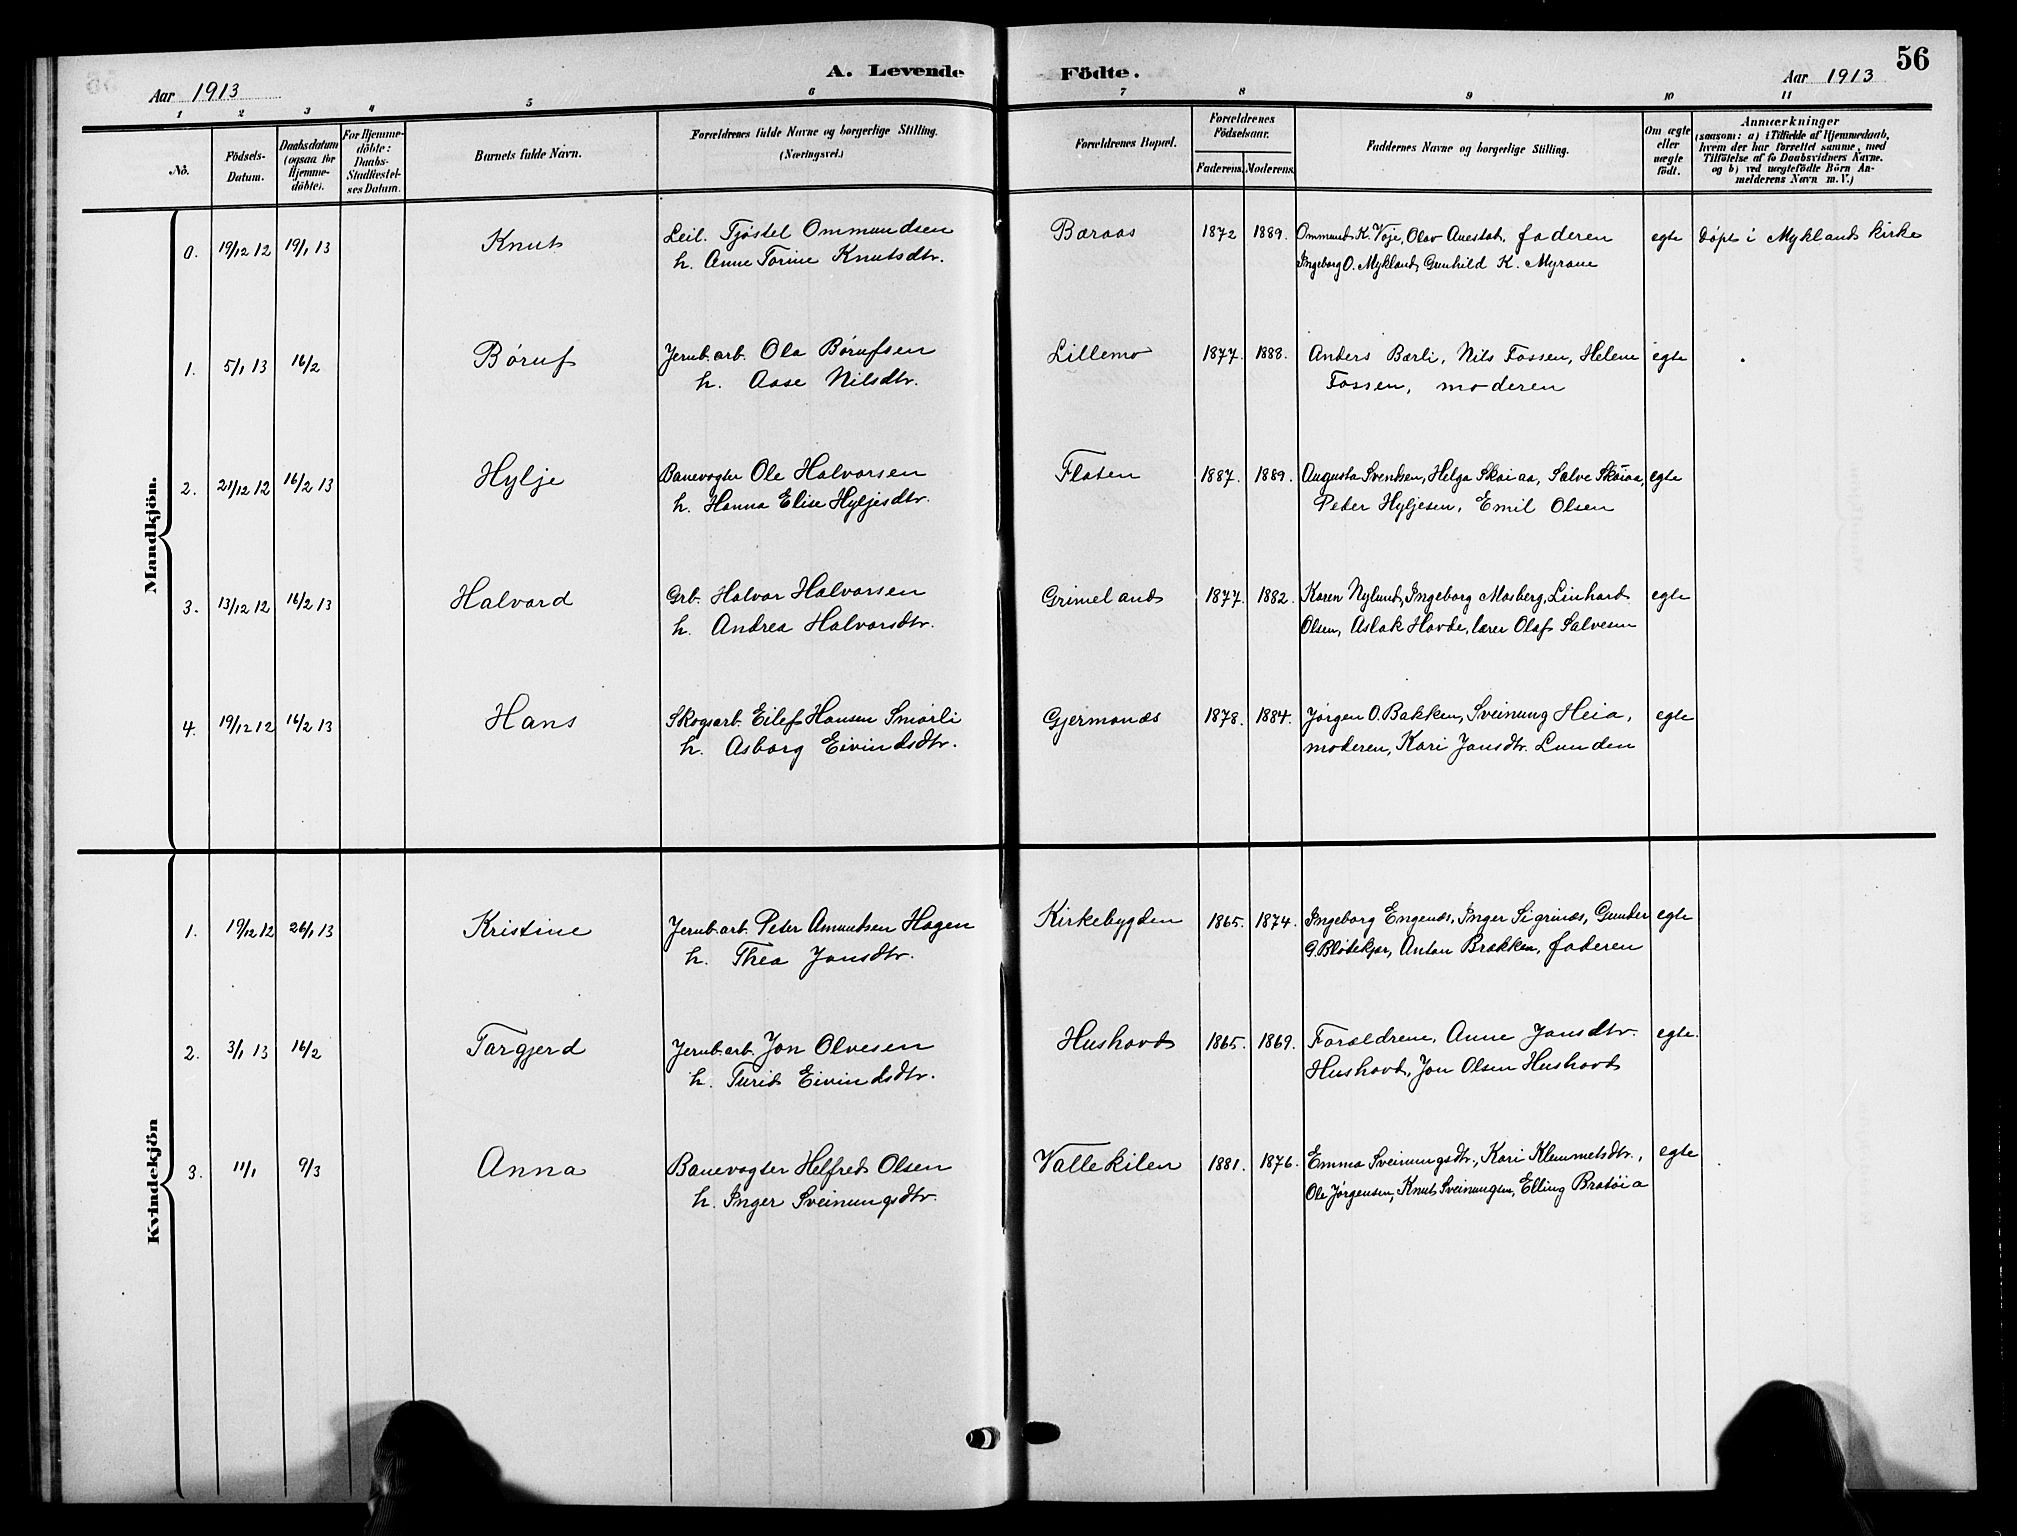 A. Levende Födte.
56
Aar 1913
Aar 1913
1 2 3 4 5 6 7 8 9 10 11
No.
Födsels-Datum.
Daabsdatum (ogsaa for Hjemme-döbte).
For Hjemme-döbte: Daabs-Stadfæstel-ses Datum.
Barnets fulde Navn.
Forældrenes fulde Navne og borgerlige Stilling.
(Næringsvei.)
Forældrenes Bopæl.
Forældrenes Födselsaar.
Faderens. Moderens.
Faddernes Navne og borgerlige Stilling.
Om ægte eller uægte födt.
Anmærkninger
(saasom: a) i Tilfælde af Hjemmedaab,
hvem der har forrettet samme, med
Tilföielse af to Daabsvidners Navne.
og b) ved uægtefödte Börn An-
melderens Navn m. V.)
Mandkjön.
0. 19/12 12 19/1 13 Knut Leil. Tjøstel Ommundsen Baraas 1872 1889. Ommund K. Voje, Olav Auestad, faderen egte Døpt i Mykland kirke
h. Anne Torine Knutsdtr. Ingeborg O. Mykland, Gunhild K. Myrane
1. 5/1 13 16/2 Børuf Jernb.arb. Ola Børufsen Lillemo 1877. 1888. Anders Bærli, Nils Fossen, Helene egte
h. Aase Nilsdtr. Fossen, moderen
2. 21/12 12 16/2 13 Hylje Banevogter Ole Halvorsen Flaten 1887. 1889. Augusta Svendsen, Helga Skøiaa, Salve Skøiaa, egte
h. Hanna Elise Hyljesdtr. Peder Hyljesen, Emil Olsen
3. 13/12 12 16/2 13 Halvord Grb. Halvor Halvorsen Grimeland 1877. 1882. Karen Nylund, Ingeborg Mosberg, Linhard egte
h. Andrea Halvorsdtr. Olsen, Aslak Hovde, lærer Olaf Salvesen
4. 19/12 12 16/2 13 Hans Skogsarb. Eilef Hansen Smørli Gjermonds 1878. 1884. Jørgen O. Bakken, Sveinung Heia, egte
h. Asborg Eivindsdtr. moderen, Kari Jonsdtr. Lunden
Kvindekjön
1. 19/12 12 26/1 13 Kristine Jernb.arb. Peter Amundsen Hagen Kirkebygden 1865. 1874. Ingeborg Engenes, Inger Sigrines, Gunder egte
h. Thea Jonsdtr. G. Bløtekjær, Anton Brækken, faderen
2. 3/1 13 16/2 Targjerd Jernb.arb. Jon Olvesen Hushovd 1865. 1869. Forældrene, Anne Jonsdtr. egte.
h. Turid Eivindsdtr. Hushovd, Jon Olsen Hushovd
3. 11/1 9/3 Anna Banevogter Helfred Olsen Vallekilen 1881. 1876. Emma Sveinungsdtr., Kari Klemmetsdtr., egte
h. Inger Sveinungsdtr. Ole Jørgensen, Knut Sveinungsen, Elling Bratøia